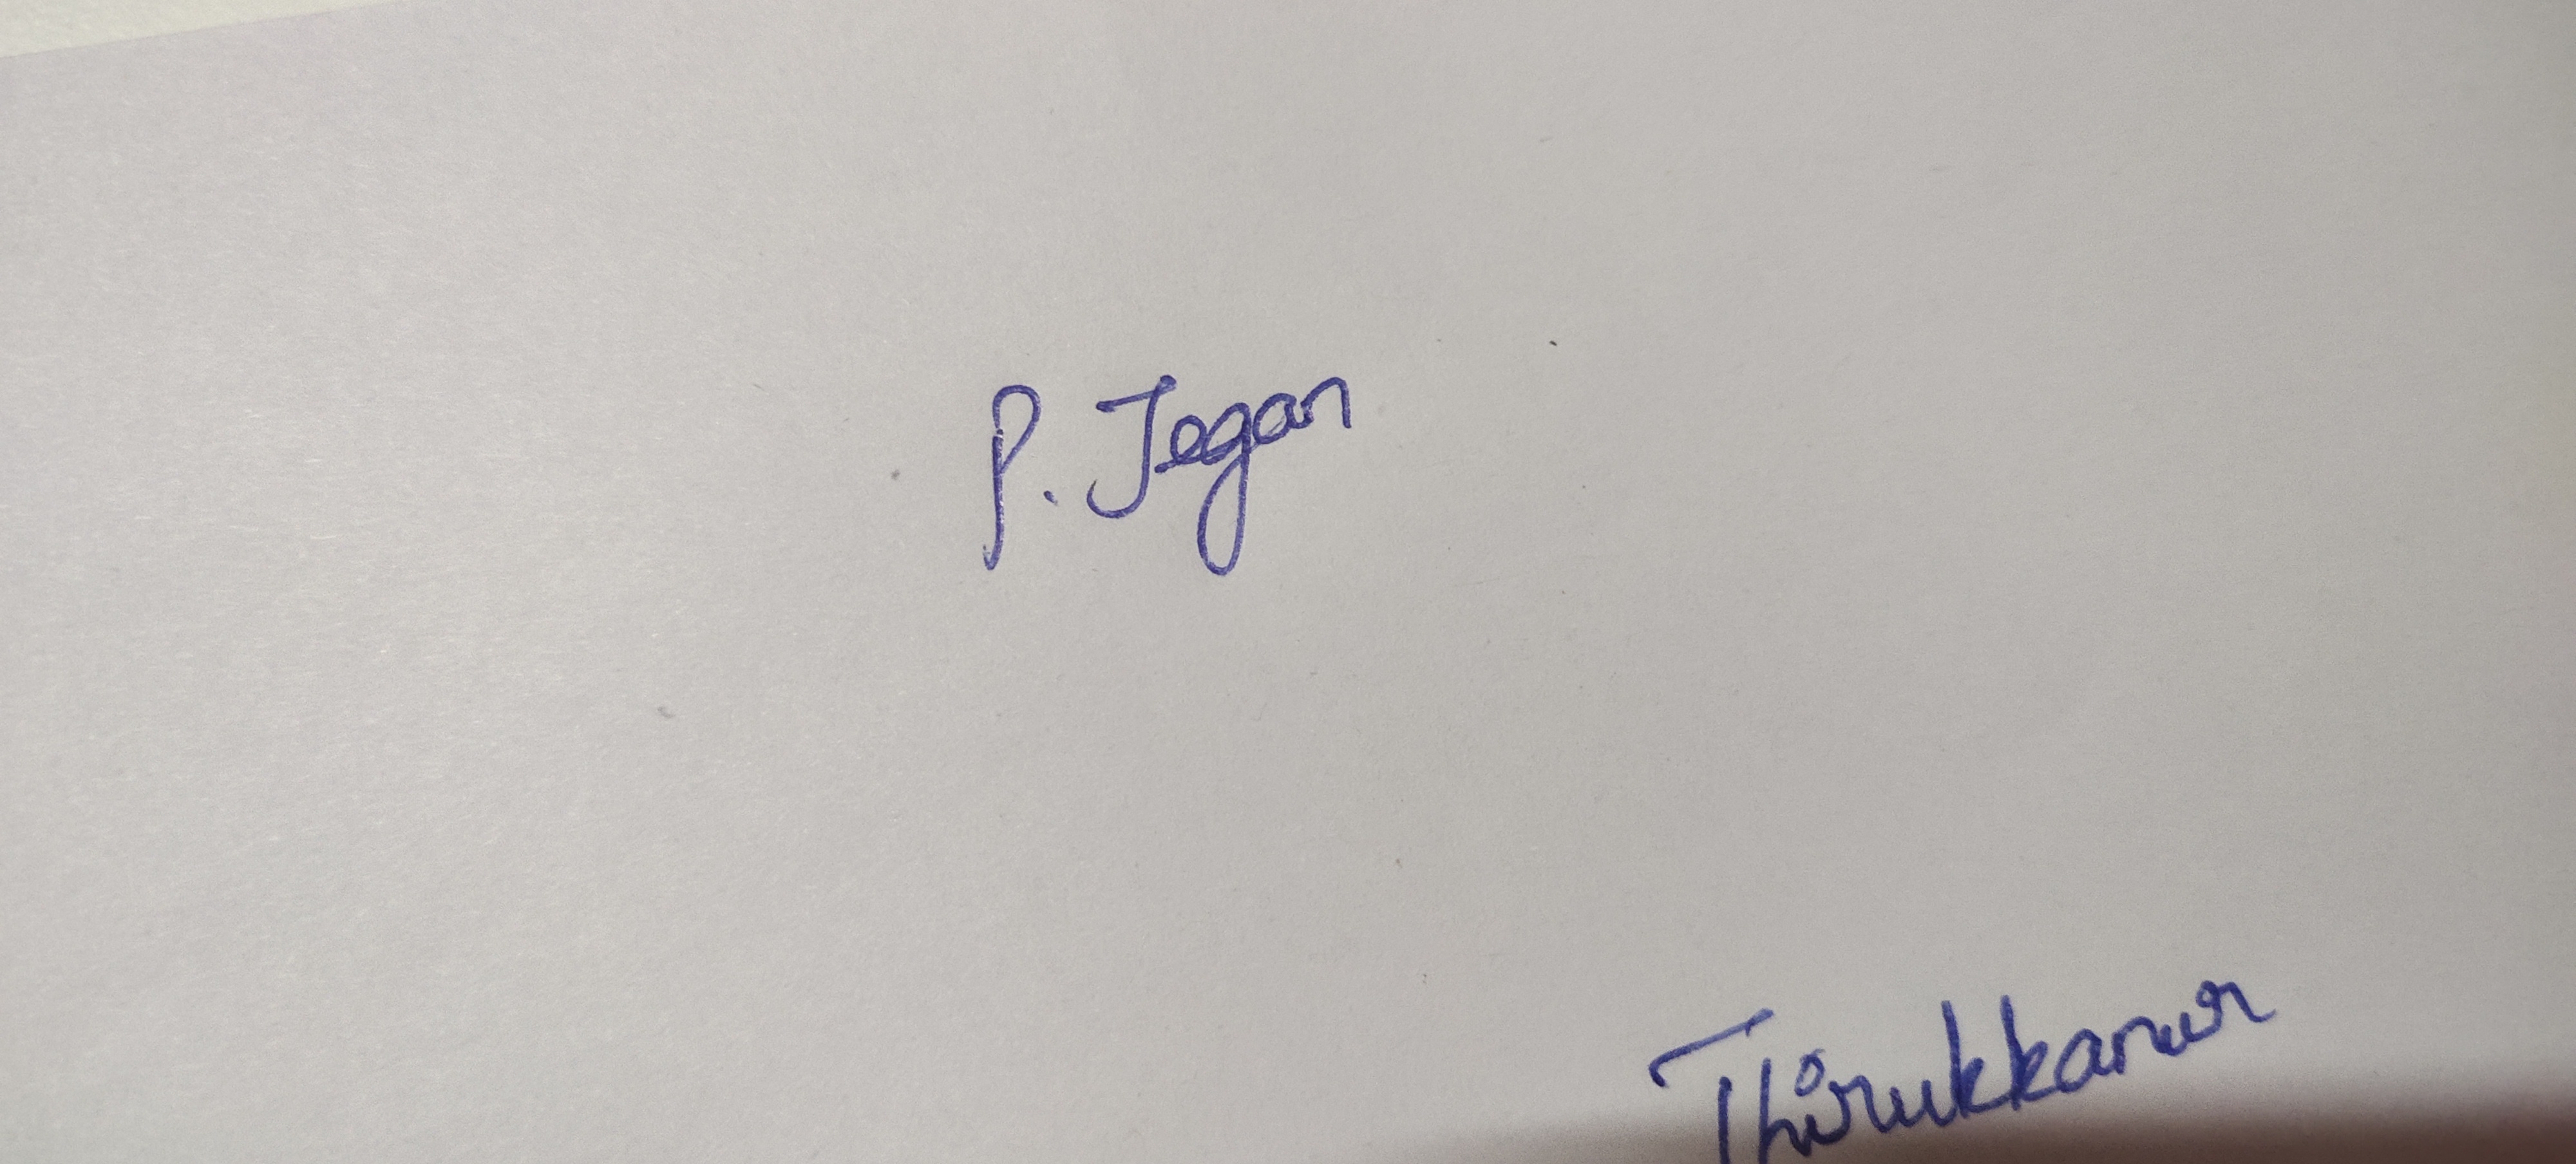 P. Jegan
Thirukkanur